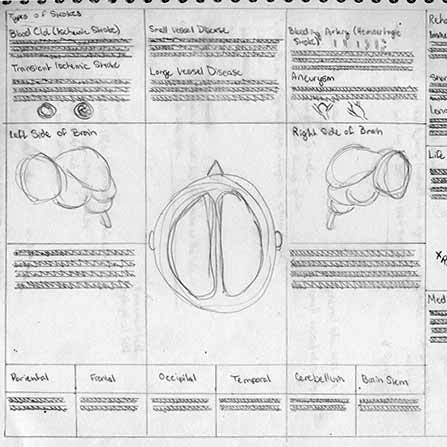 Types of Strokes
Blood Clot (Ischemic Stroke)
Transient Ischemic Stroke
Small Vessel Disease
Large Vessel Disease
Bleeding Artery (Hemorrhagic
Stroke)
Aneurysm
Left Side of Brain
Right Side of Brain
Life
Med
Parietal
Frontal
Occipital
Temporal
Cerebellum
Brain Stem